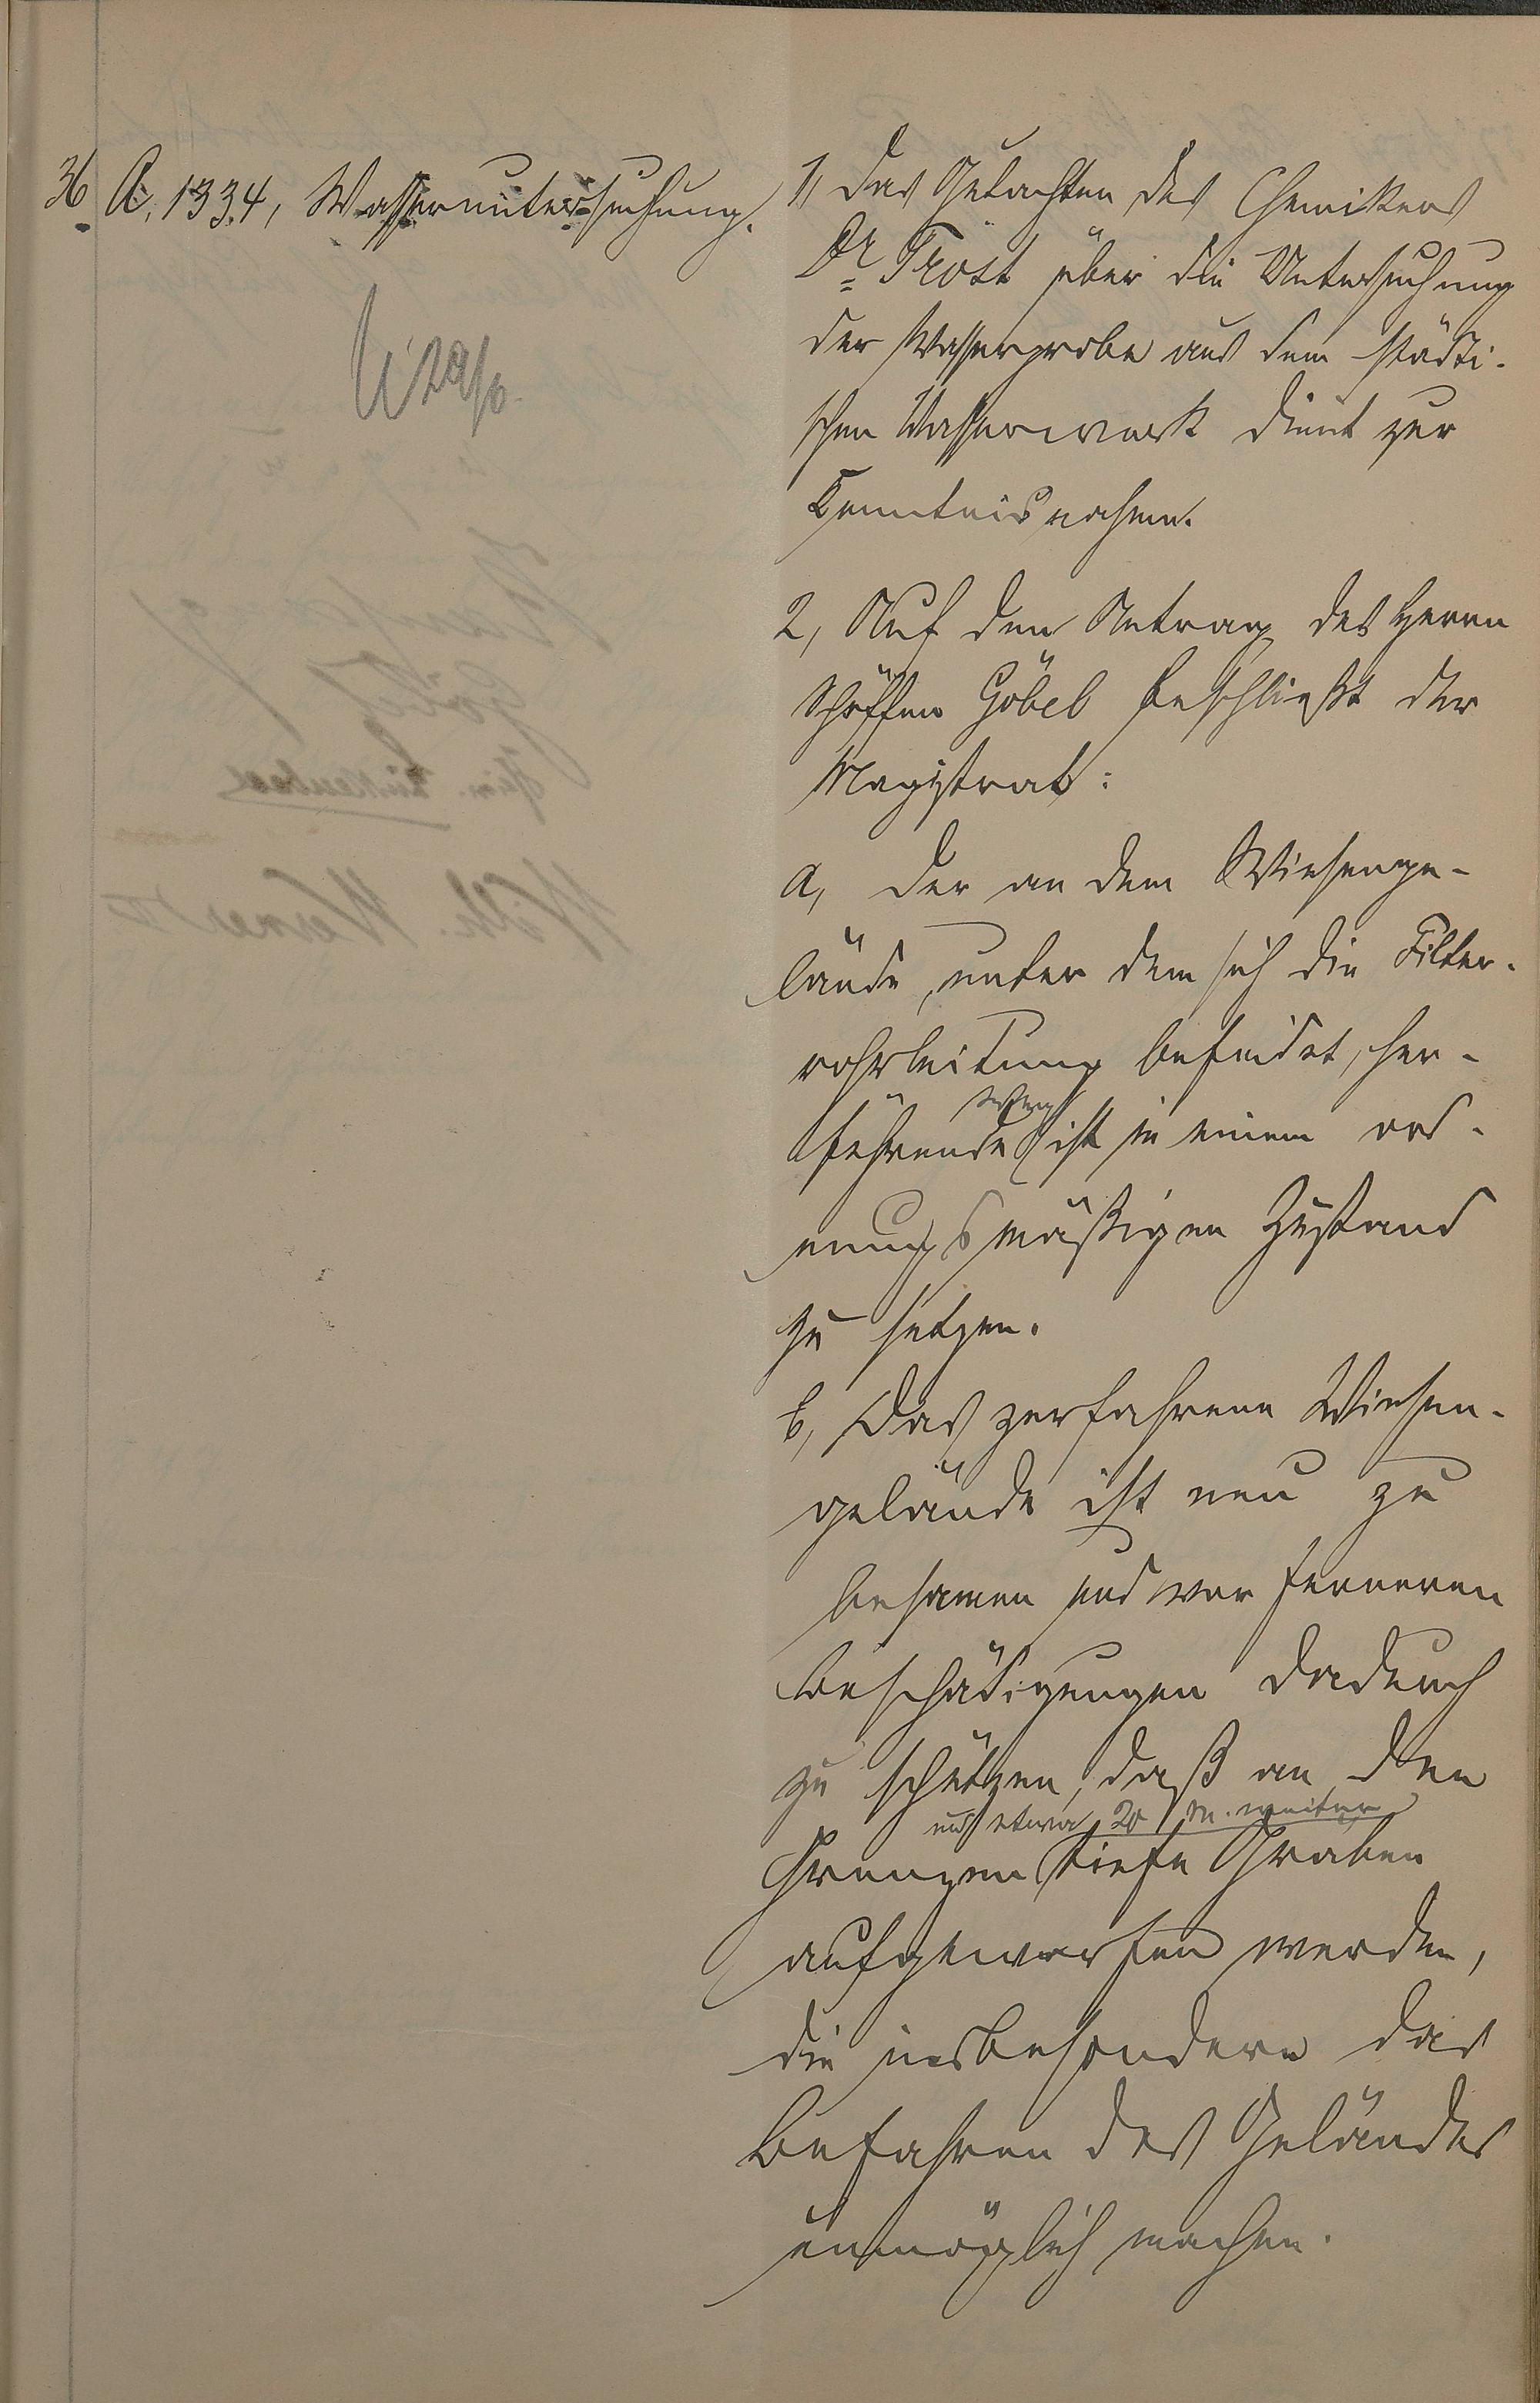 36 A. 1334, Wasseruntersuchung.
1, Das Gutachten des Chemikers
Dr Trost über die Untersuchung
der Wasserprobe aus dem städti-
schen Wasserwerk dient zur
Kenntnisnahme.
2, Auf den Antrag des Herrn
Schöffen Göbel beschließt der
Magistrat:
a, Der an dem Wiesenge-
lände, unter dem sich die Filter-
rohrleitung befindet, her-
Weg
führende ist in einem ord-
nungsmäßigen Zustand
zu setzen.
b, Das zerfahrene Wiesen-
gelände ist neu zu
besamen und vor ferneren
Beschädigungen dadurch
zu schützen, daß an den
und etwa 20 m. weiter
Grenzen tiefe Gräben
aufgeworfen werden,
die insbesondere das
Befahren des Geländes
unmöglich machen.